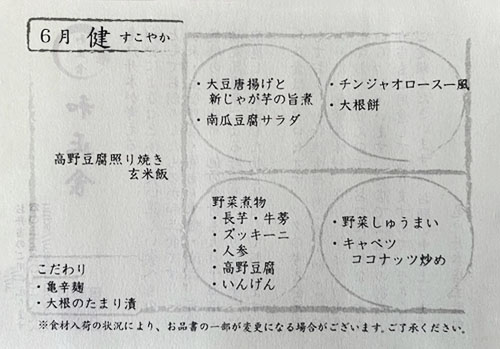 6月 健 すこやか
・大豆唐揚げと
新じゃが芋の旨煮
・南瓜豆腐サラダ
・チンジャオロースー風
・大根餅
高野豆腐照り焼き
玄米飯
野菜煮物
・長芋・牛蒡
・ズッキーニ
・人参
・高野豆腐
・いんげん
・野菜しゅうまい
・キャベツ
ココナッツ炒め
こだわり
・亀辛麹
・大根のたまり漬
※食材入荷の状況により、お品書の一部が変更になる場合がございます。ご了承ください。